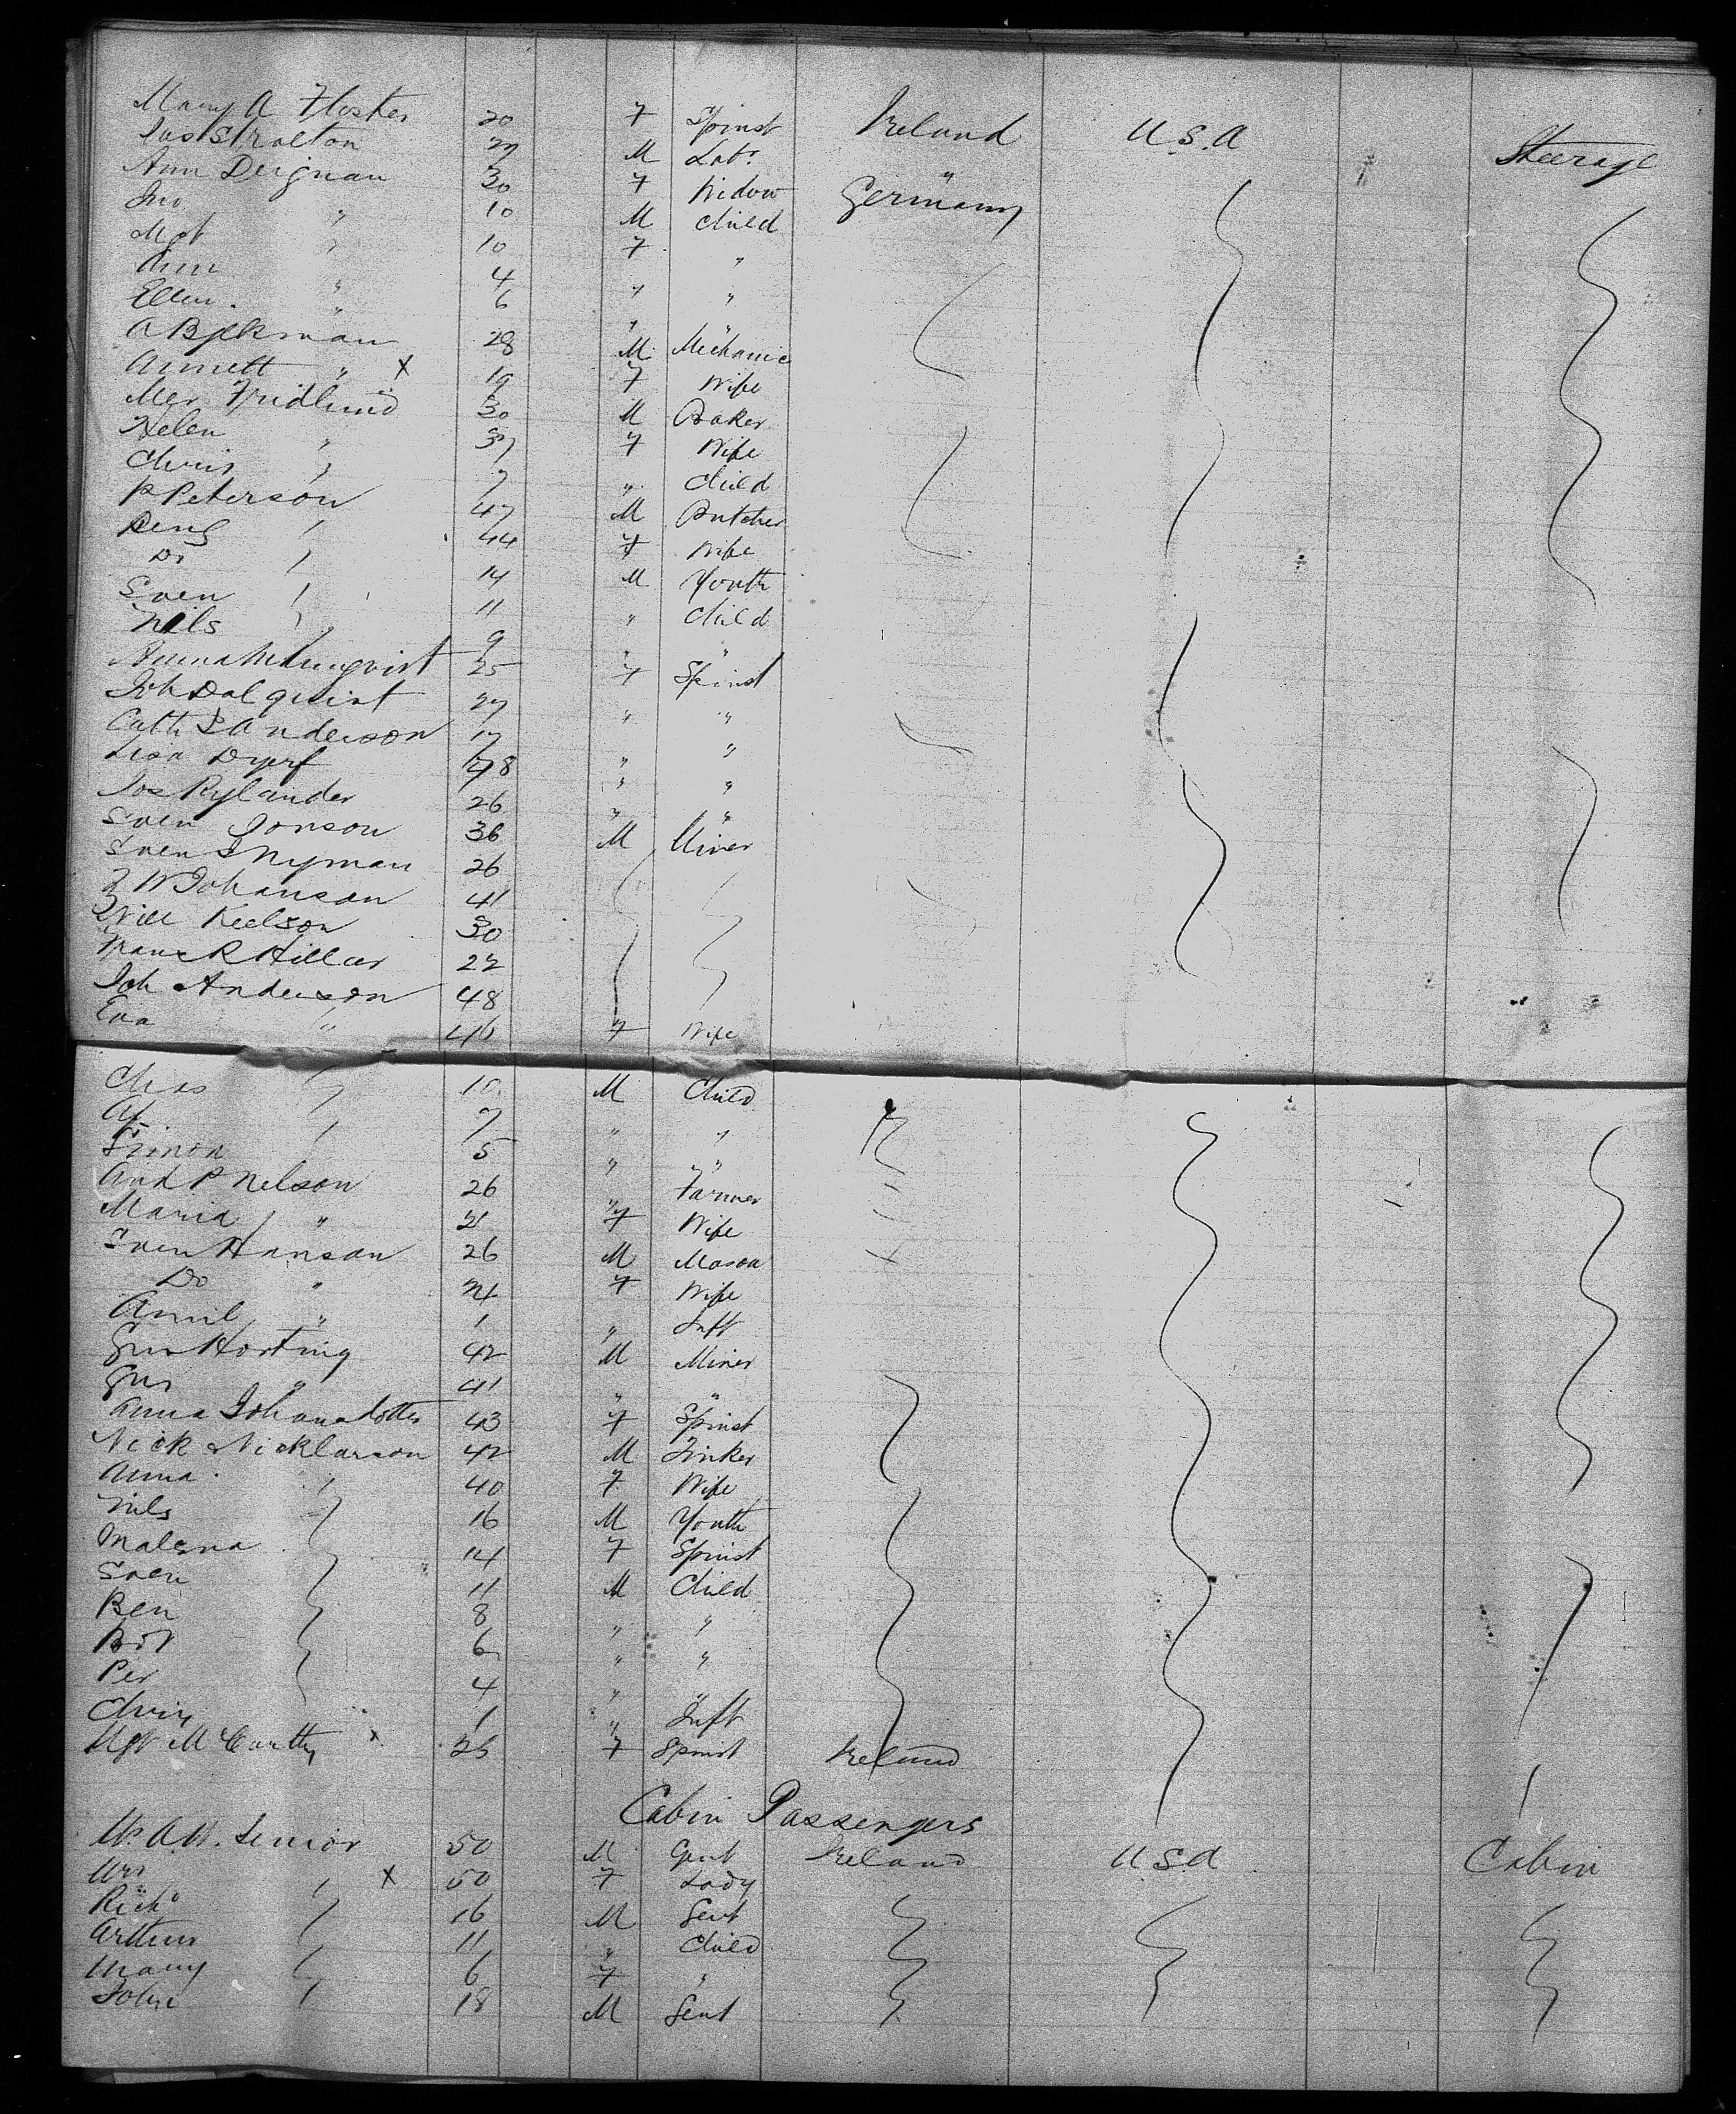 Mary A Floster 20 F Spinst Ireland U.S.A Steerage
Jas Stratton 27 M Labr "
Ann Deignan 30 F Widow Germany
Jno " 10 M Child
Mgt " 10 F "
Ann " 4 " "
Ellen " 6 " "
A Bjekman 28 M Mechanic
Annett " X 19 F Wife
Fridlund 30 M Baker
Helen " 37 F Wife
Chris " 7 " Child
P Peterson 47 M Butcher
Beng " 44 F Wife
Do " 14 M Youth
Sven " 11 " Child
Nils " 9 " "
Anna 25 F Spinst
Joh Dalquist 27 " "
Cath S Anderson 17 " "
Lisa 48 " "
Jos Rylander 26 " "
Sven Jonson 36 M Miner
Sven Nyman 26
W Johanson 41
Will Keelson 30
Frans R Hillar 22
Joh Anderson 48
Eva " 46 F Wife
Chas " 10 M Child
" 7 " "
Simon 5 " "
And P Nelson 26 " Farmer
Maria " 21 F Wife
Sven Hanson 26 M Mason
Do " 24 F Wife
Amil " 1 " Inft
Gus Horting 42 M Miner
Gus " 41 " "
Anna Johanadotter 43 F Spinst
Nick Nicklarson 42 M Tinker
Anna " 40 F Wife
Nils " 16 M Youth
Malena 14 F Spinst
Sven 11 M Child
Ben 8 " "
6 " "
Per 4 " "
Chris 1 " Inft
Mgt McCarthy x 26 F Spinst Ireland
Cabin Passengers
Mr A W. Senior 50 M Gent Ireland USA Cabin
Mrs " X 50 F Lady
Richd " 16 M Gent
Arthur " 11 " Child
Mary " 6 F "
John " 18 M Gent